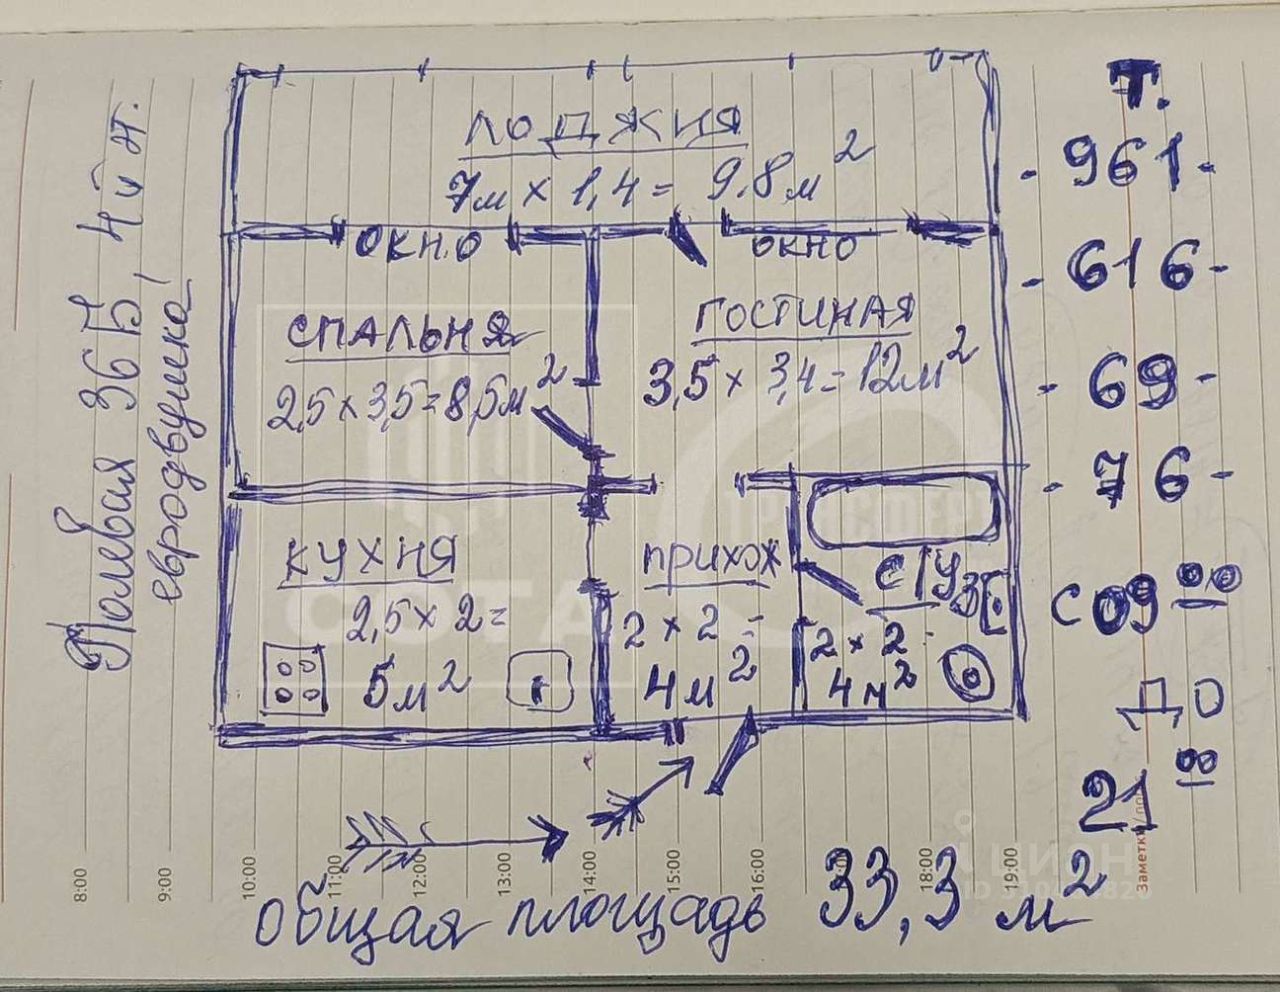 Полевая 36Б, 4й эт.
евродвушка
ЛОДЖИЯ
7м х 1,4 = 9.8м²
ОКНО
ОКНО
СПАЛЬНЯ
2,5 х 3,5=8,5м²
ГОСТИНАЯ
3,5 х 3,4=12м²
КУХНЯ
2,5 х 2=
5м²
ПРИХОЖ
2 х 2 =
4м²
С/УЗ
2 х 2
4м²
общая площадь 33,3 м²
Т.
- 961 -
- 616 -
- 69 -
- 76 -
С 09 00
ДО
21 00
8:00
9:00
10:00
11:00
12:00
13:00
14:00
15:00
16:00
18:00
19:00
Заметки
ЭКСПЕРТ
СОТА
ЦИАН